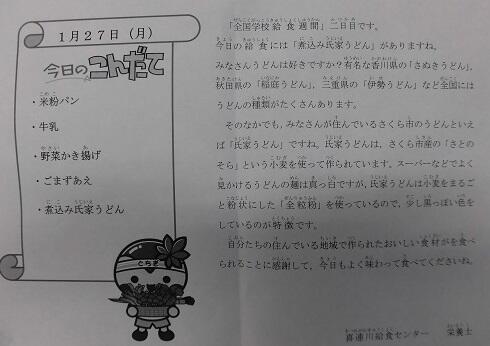 1月27日(月)
今日のこんだて
・米粉パン
・牛乳
・野菜かき揚げ
・ごまずあえ
・煮込み氏家うどん
とちぎ
「全国学校給食週間」二日目です。
今日の給食には「煮込み氏家うどん」がありますね。
みなさんうどんは好きですか?有名な香川県の「さぬきうどん」、
秋田県の「稲庭うどん」、三重県の「伊勢うどん」など全国には
うどんの種類がたくさんあります。
そのなかでも、みなさんが住んでいるさくら市のうどんといえ
ば「氏家うどん」ですね。氏家うどんは、さくら市産の「さとの
そら」という小麦を使って作られています。スーパーなどでよく
見かけるうどんの麺は真っ白ですが、氏家うどんは小麦をまるご
と粉状にした「全粒粉」を使っているので、少し黒っぽい色を
しているのが特徴です。
自分たちの住んでいる地域で作られたおいしい食材がを食べ
られることに感謝して、今日もよく味わって食べてくださいね。
喜連川給食センター 栄養士